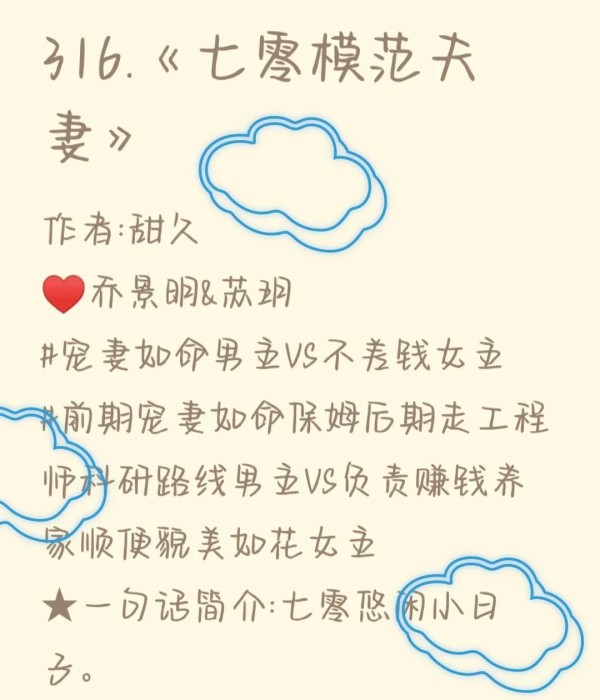 316.《七零模范夫
妻》
作者:甜久
❤️乔景明&苏玥
#宠妻如命男主VS不差钱女主
#前期宠妻如命保姆后期走工程
师科研路线男主VS负责赚钱养
家顺便貌美如花女主
★一句话简介:七零悠闲小日
子。